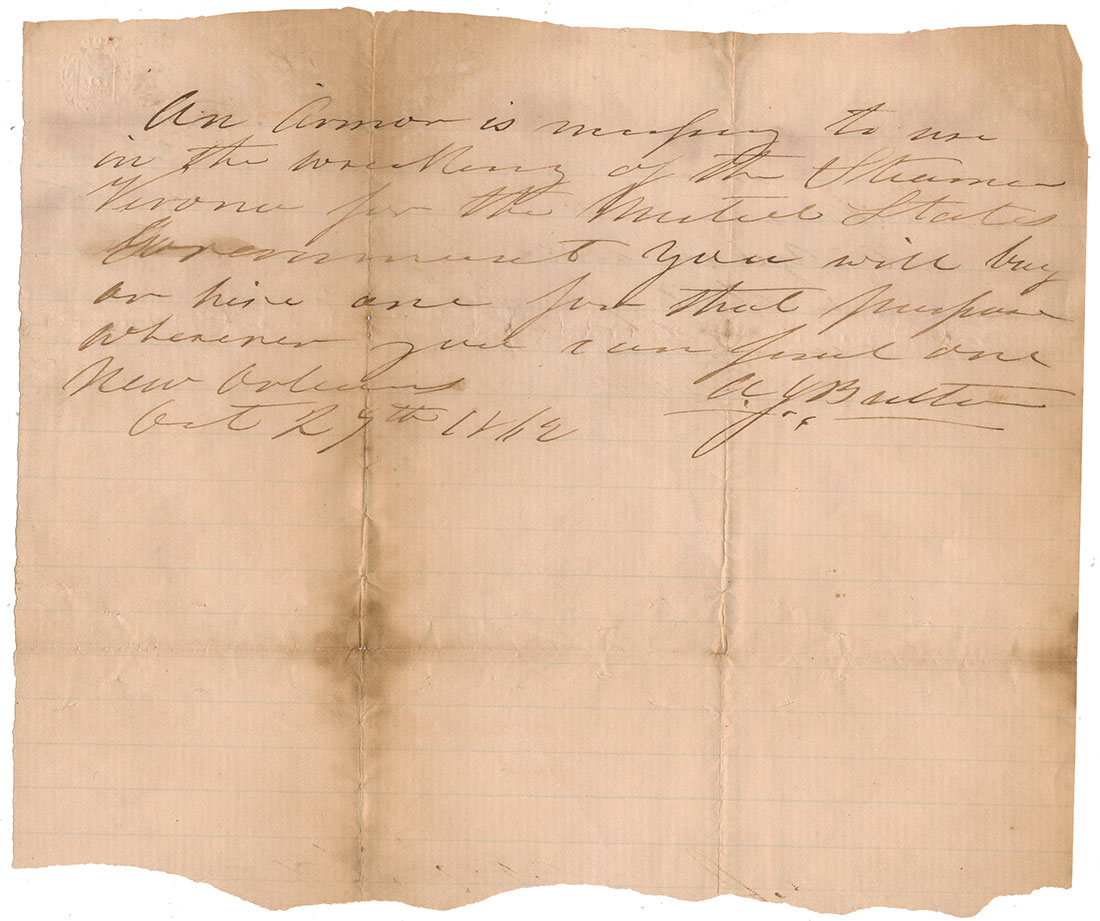 An Armor is necessary to use
in the wrecking of the Steamer
Verona for the United States
Government you will buy
or hire one for that purpose
wherever you can find one
New Orleans A. J. Butler
Oct 29th 1862